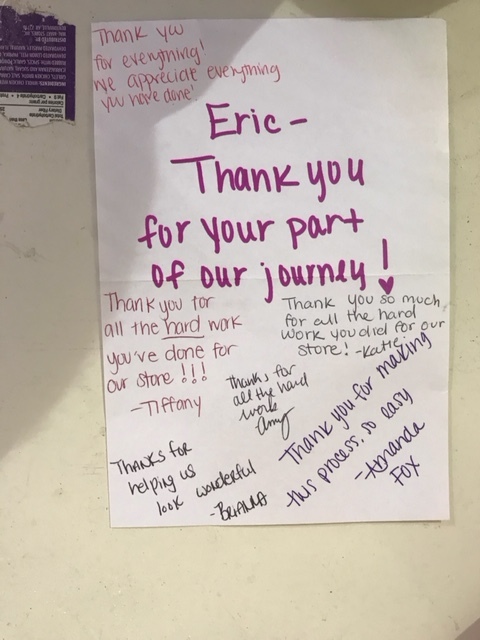 Thank you
for everything!
we appreciate everything
you have done!
Eric -
Thank you
for your part
of our journey!
Thank you for
all the hard work
you've done for
our store!!!
-Tiffany
Thank you so much
for all the hard
work you did for our
store! -Katie
Thanks for
all the hard
work
Amy
Thank you for making
this process, so easy
-Amanda
Fox
THANKS for
helping us
look wonderful
-BRIANNA